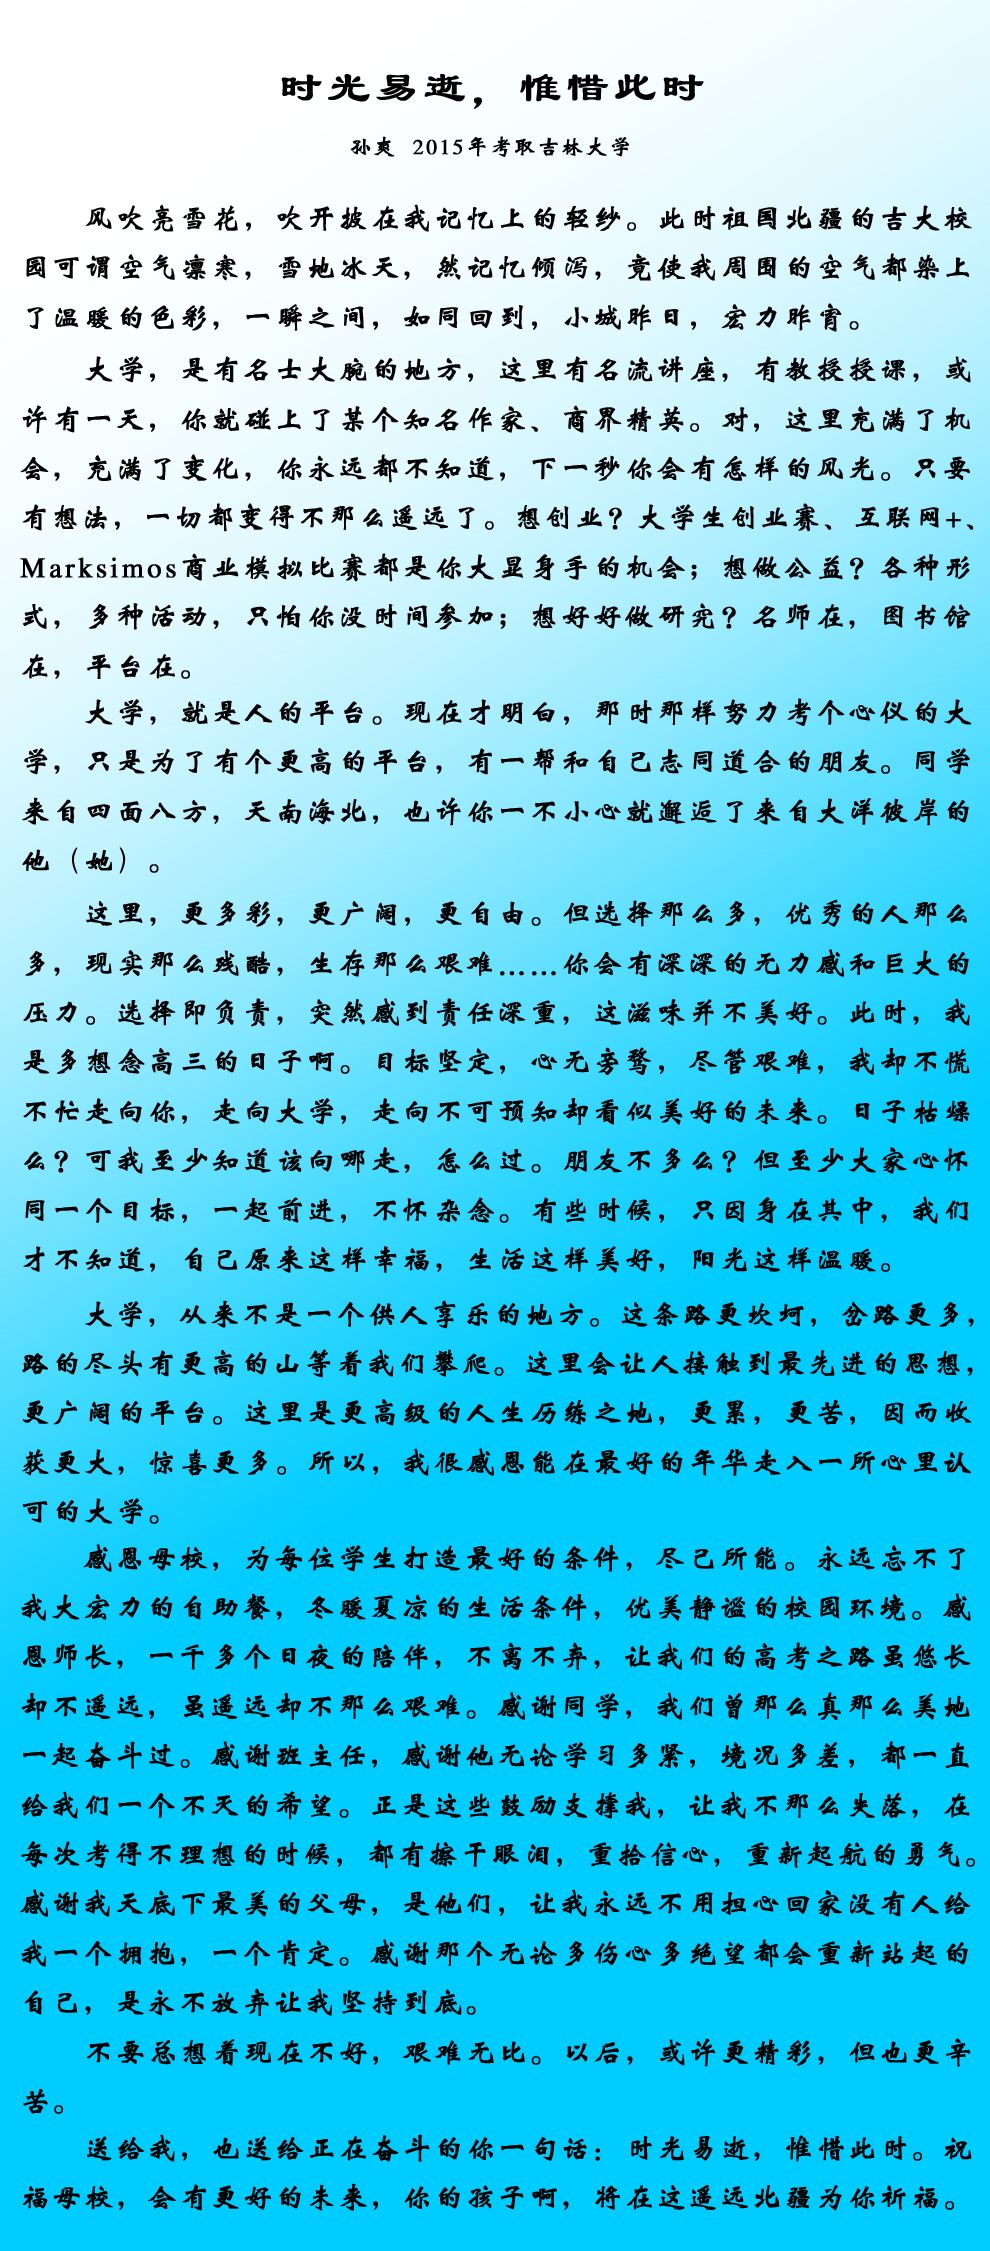 时光易逝，惟惜此时
孙爽 2015年考取吉林大学
风吹亮雪花，吹开披在我记忆上的轻纱。此时祖国北疆的吉大校
园可谓空气凛寒，雪地冰天，然记忆倾泻，竟使我周围的空气都染上
了温暖的色彩，一瞬之间，如同回到，小城昨日，宏力昨宵。
大学，是有名士大腕的地方，这里有名流讲座，有教授授课，或
许有一天，你就碰上了某个知名作家、商界精英。对，这里充满了机
会，充满了变化，你永远都不知道，下一秒你会有怎样的风光。只要
有想法，一切都变得不那么遥远了。想创业？大学生创业赛、互联网+、
Marksimos商业模拟比赛都是你大显身手的机会；想做公益？各种形
式，多种活动，只怕你没时间参加；想好好做研究？名师在，图书馆
在，平台在。
大学，就是人的平台。现在才明白，那时那样努力考个心仪的大
学，只是为了有个更高的平台，有一帮和自己志同道合的朋友。同学
来自四面八方，天南海北，也许你一不小心就邂逅了来自大洋彼岸的
他（她）。
这里，更多彩，更广阔，更自由。但选择那么多，优秀的人那么
多，现实那么残酷，生存那么艰难……你会有深深的无力感和巨大的
压力。选择即负责，突然感到责任深重，这滋味并不美好。此时，我
是多想念高三的日子啊。目标坚定，心无旁骛，尽管艰难，我却不慌
不忙走向你，走向大学，走向不可预知却看似美好的未来。日子枯燥
么？可我至少知道该向哪走，怎么过。朋友不多么？但至少大家心怀
同一个目标，一起前进，不怀杂念。有些时候，只因身在其中，我们
才不知道，自己原来这样幸福，生活这样美好，阳光这样温暖。
大学，从来不是一个供人享乐的地方。这条路更坎坷，岔路更多，
路的尽头有更高的山等着我们攀爬。这里会让人接触到最先进的思想，
更广阔的平台。这里是更高级的人生历练之地，更累，更苦，因而收
获更大，惊喜更多。所以，我很感恩能在最好的年华走入一所心里认
可的大学。
感恩母校，为每位学生打造最好的条件，尽己所能。永远忘不了
我大宏力的自助餐，冬暖夏凉的生活条件，优美静谧的校园环境。感
恩师长，一千多个日夜的陪伴，不离不弃，让我们的高考之路虽悠长
却不遥远，虽遥远却不那么艰难。感谢同学，我们曾那么真那么美地
一起奋斗过。感谢班主任，感谢他无论学习多紧，境况多差，都一直
给我们一个不灭的希望。正是这些鼓励支撑我，让我不那么失落，在
每次考得不理想的时候，都有擦干眼泪，重拾信心，重新起航的勇气。
感谢我天底下最美的父母，是他们，让我永远不用担心回家没有人给
我一个拥抱，一个肯定。感谢那个无论多伤心多绝望都会重新站起的
自己，是永不放弃让我坚持到底。
不要总想着现在不好，艰难无比。以后，或许更精彩，但也更辛
苦。
送给我，也送给正在奋斗的你一句话：时光易逝，惟惜此时。祝
福母校，会有更好的未来，你的孩子啊，将在这遥远北疆为你祈福。